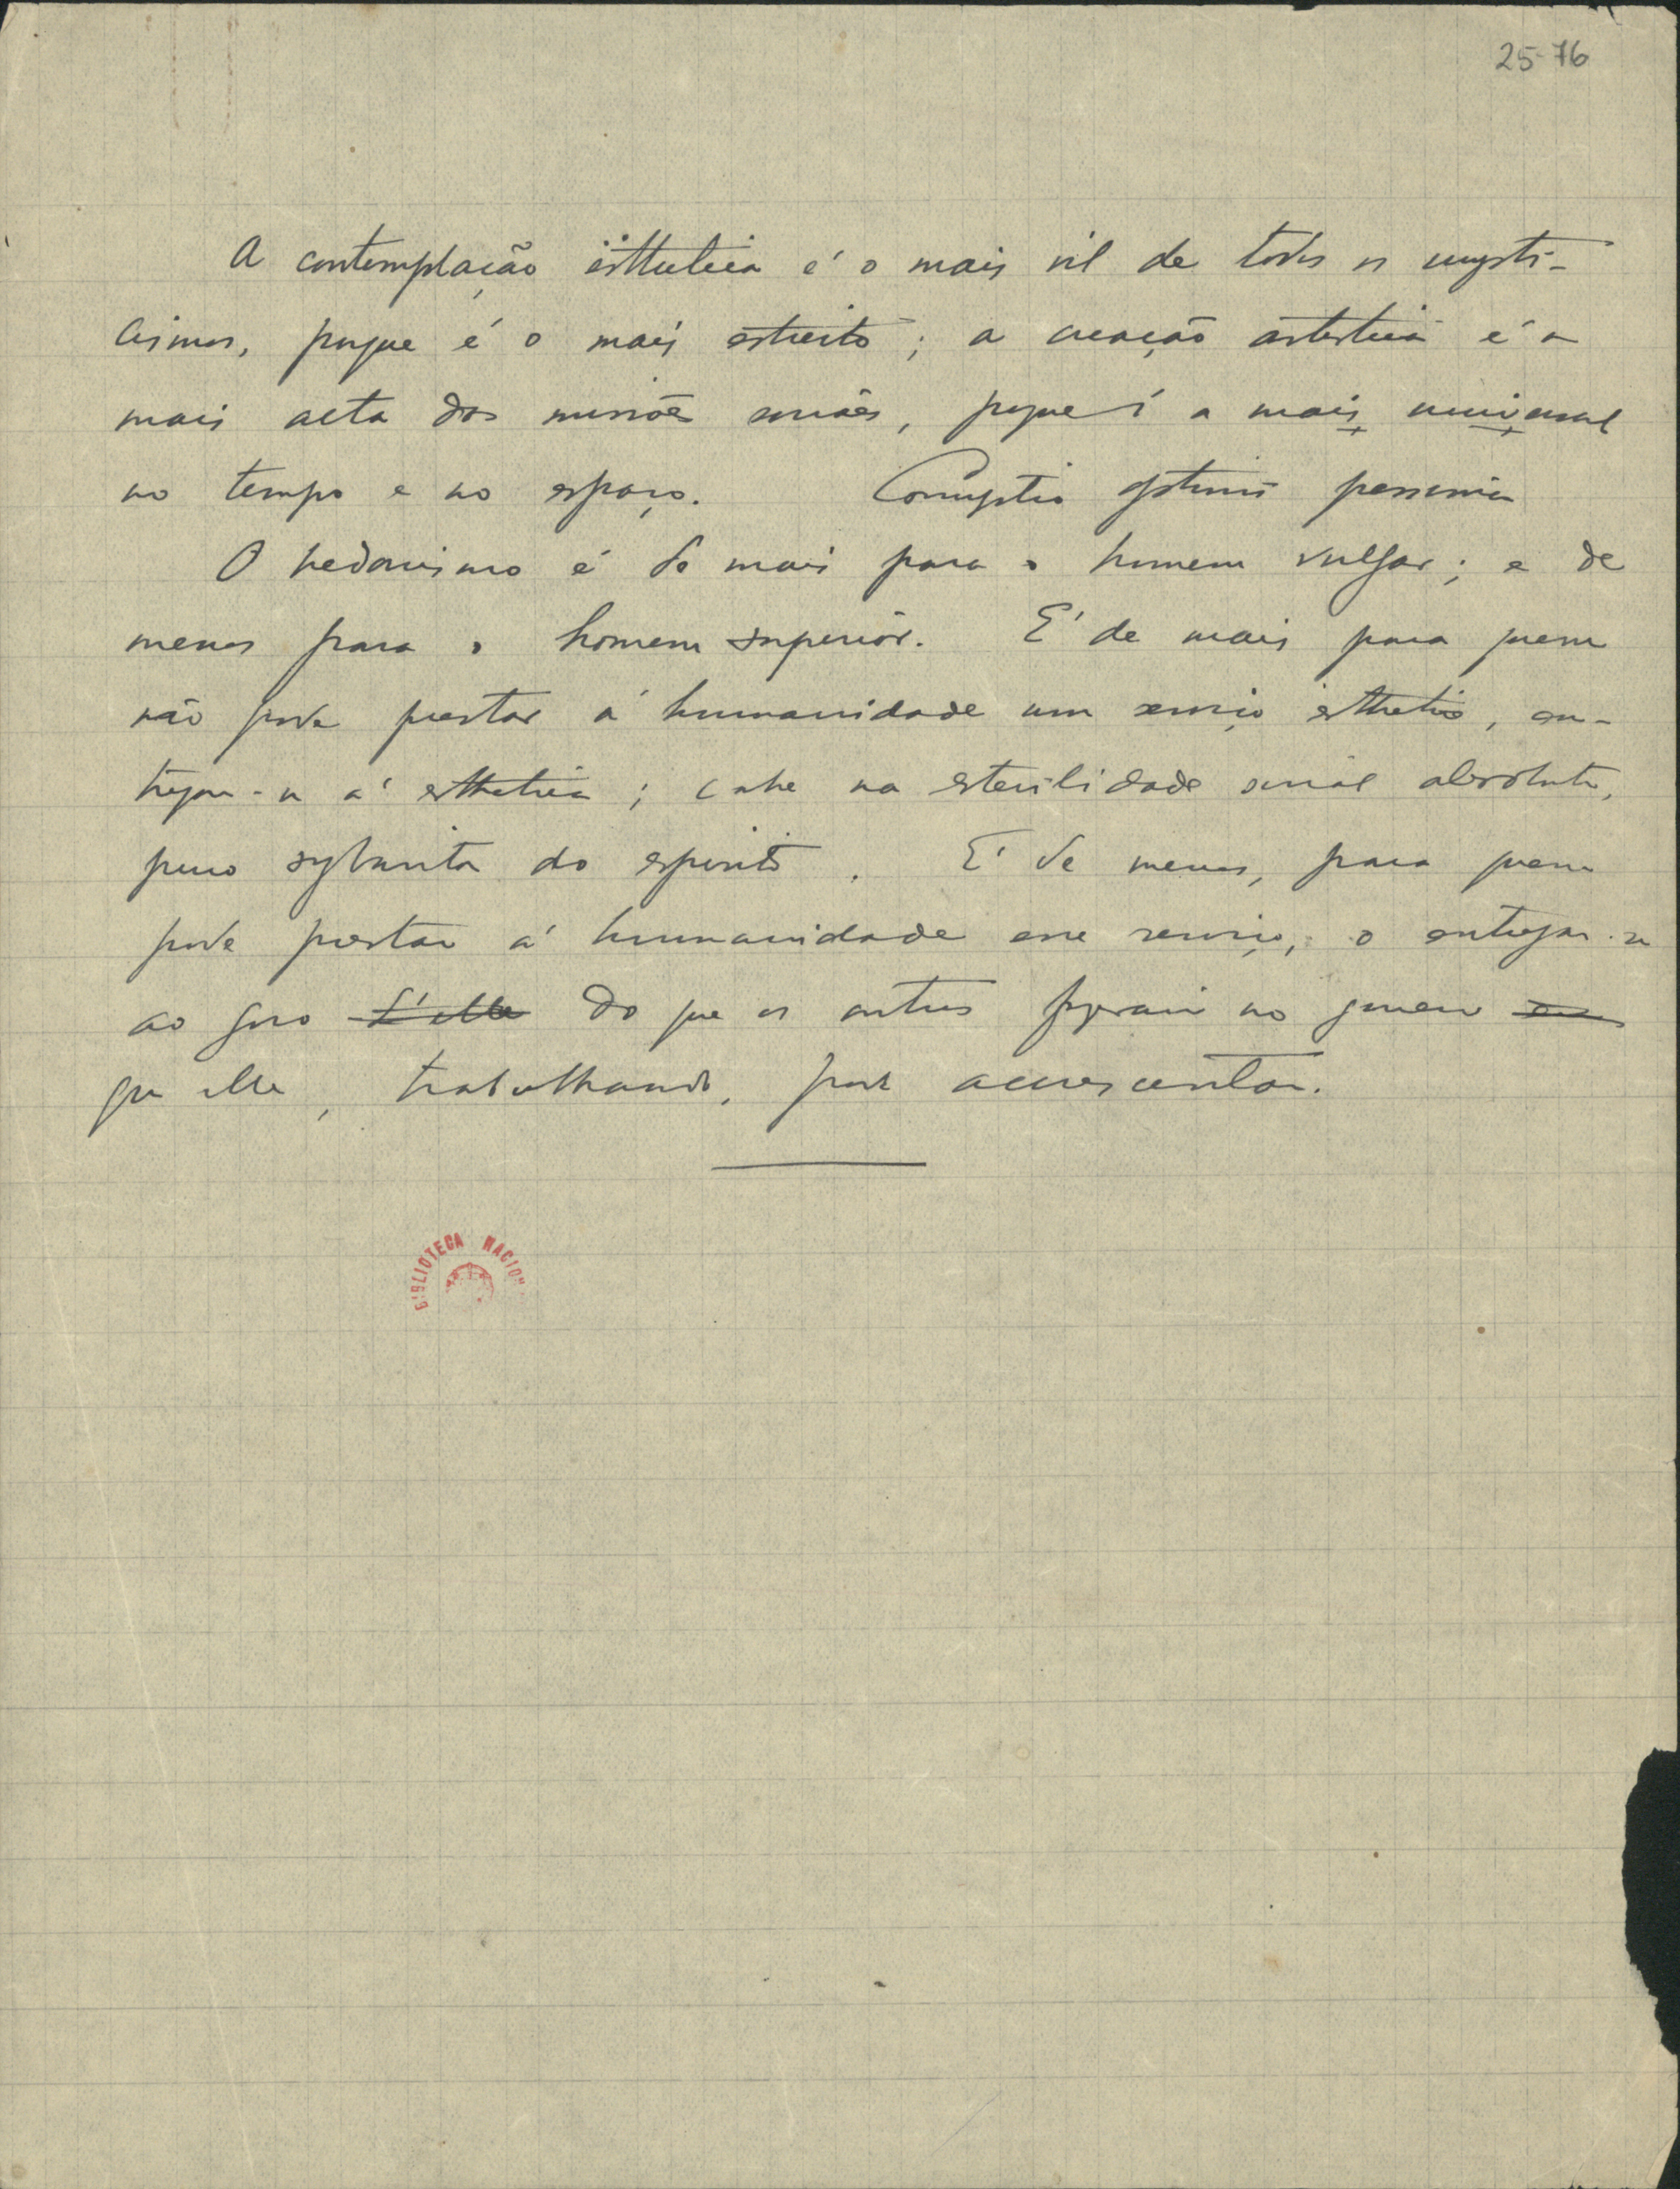 25-76
A contemplação esthetica é o mais vil de todos os mysti-
cismos, porque é o mais estreito; a creação artistica é a
mais alta das missões sociaes, porque é a mais universal
no tempo e no espaço. Corruptio optimi pessima
O hedonismo é de mais para o homem vulgar; e de
menos para o homem superior. É de mais para quem
não pode prestar á humanidade um serviço esthetico, en-
tregar-se á esthetica; cahe na esterilidade social absoluta,
puro sybarita do espirito. É de menos, para quem
pode prestar á humanidade esse serviço, o entregar-se
ao goso d'elle do que os outros fizeram no
que elle, trabalhando, pode accrescentar.
BIBLIOTECA NACION